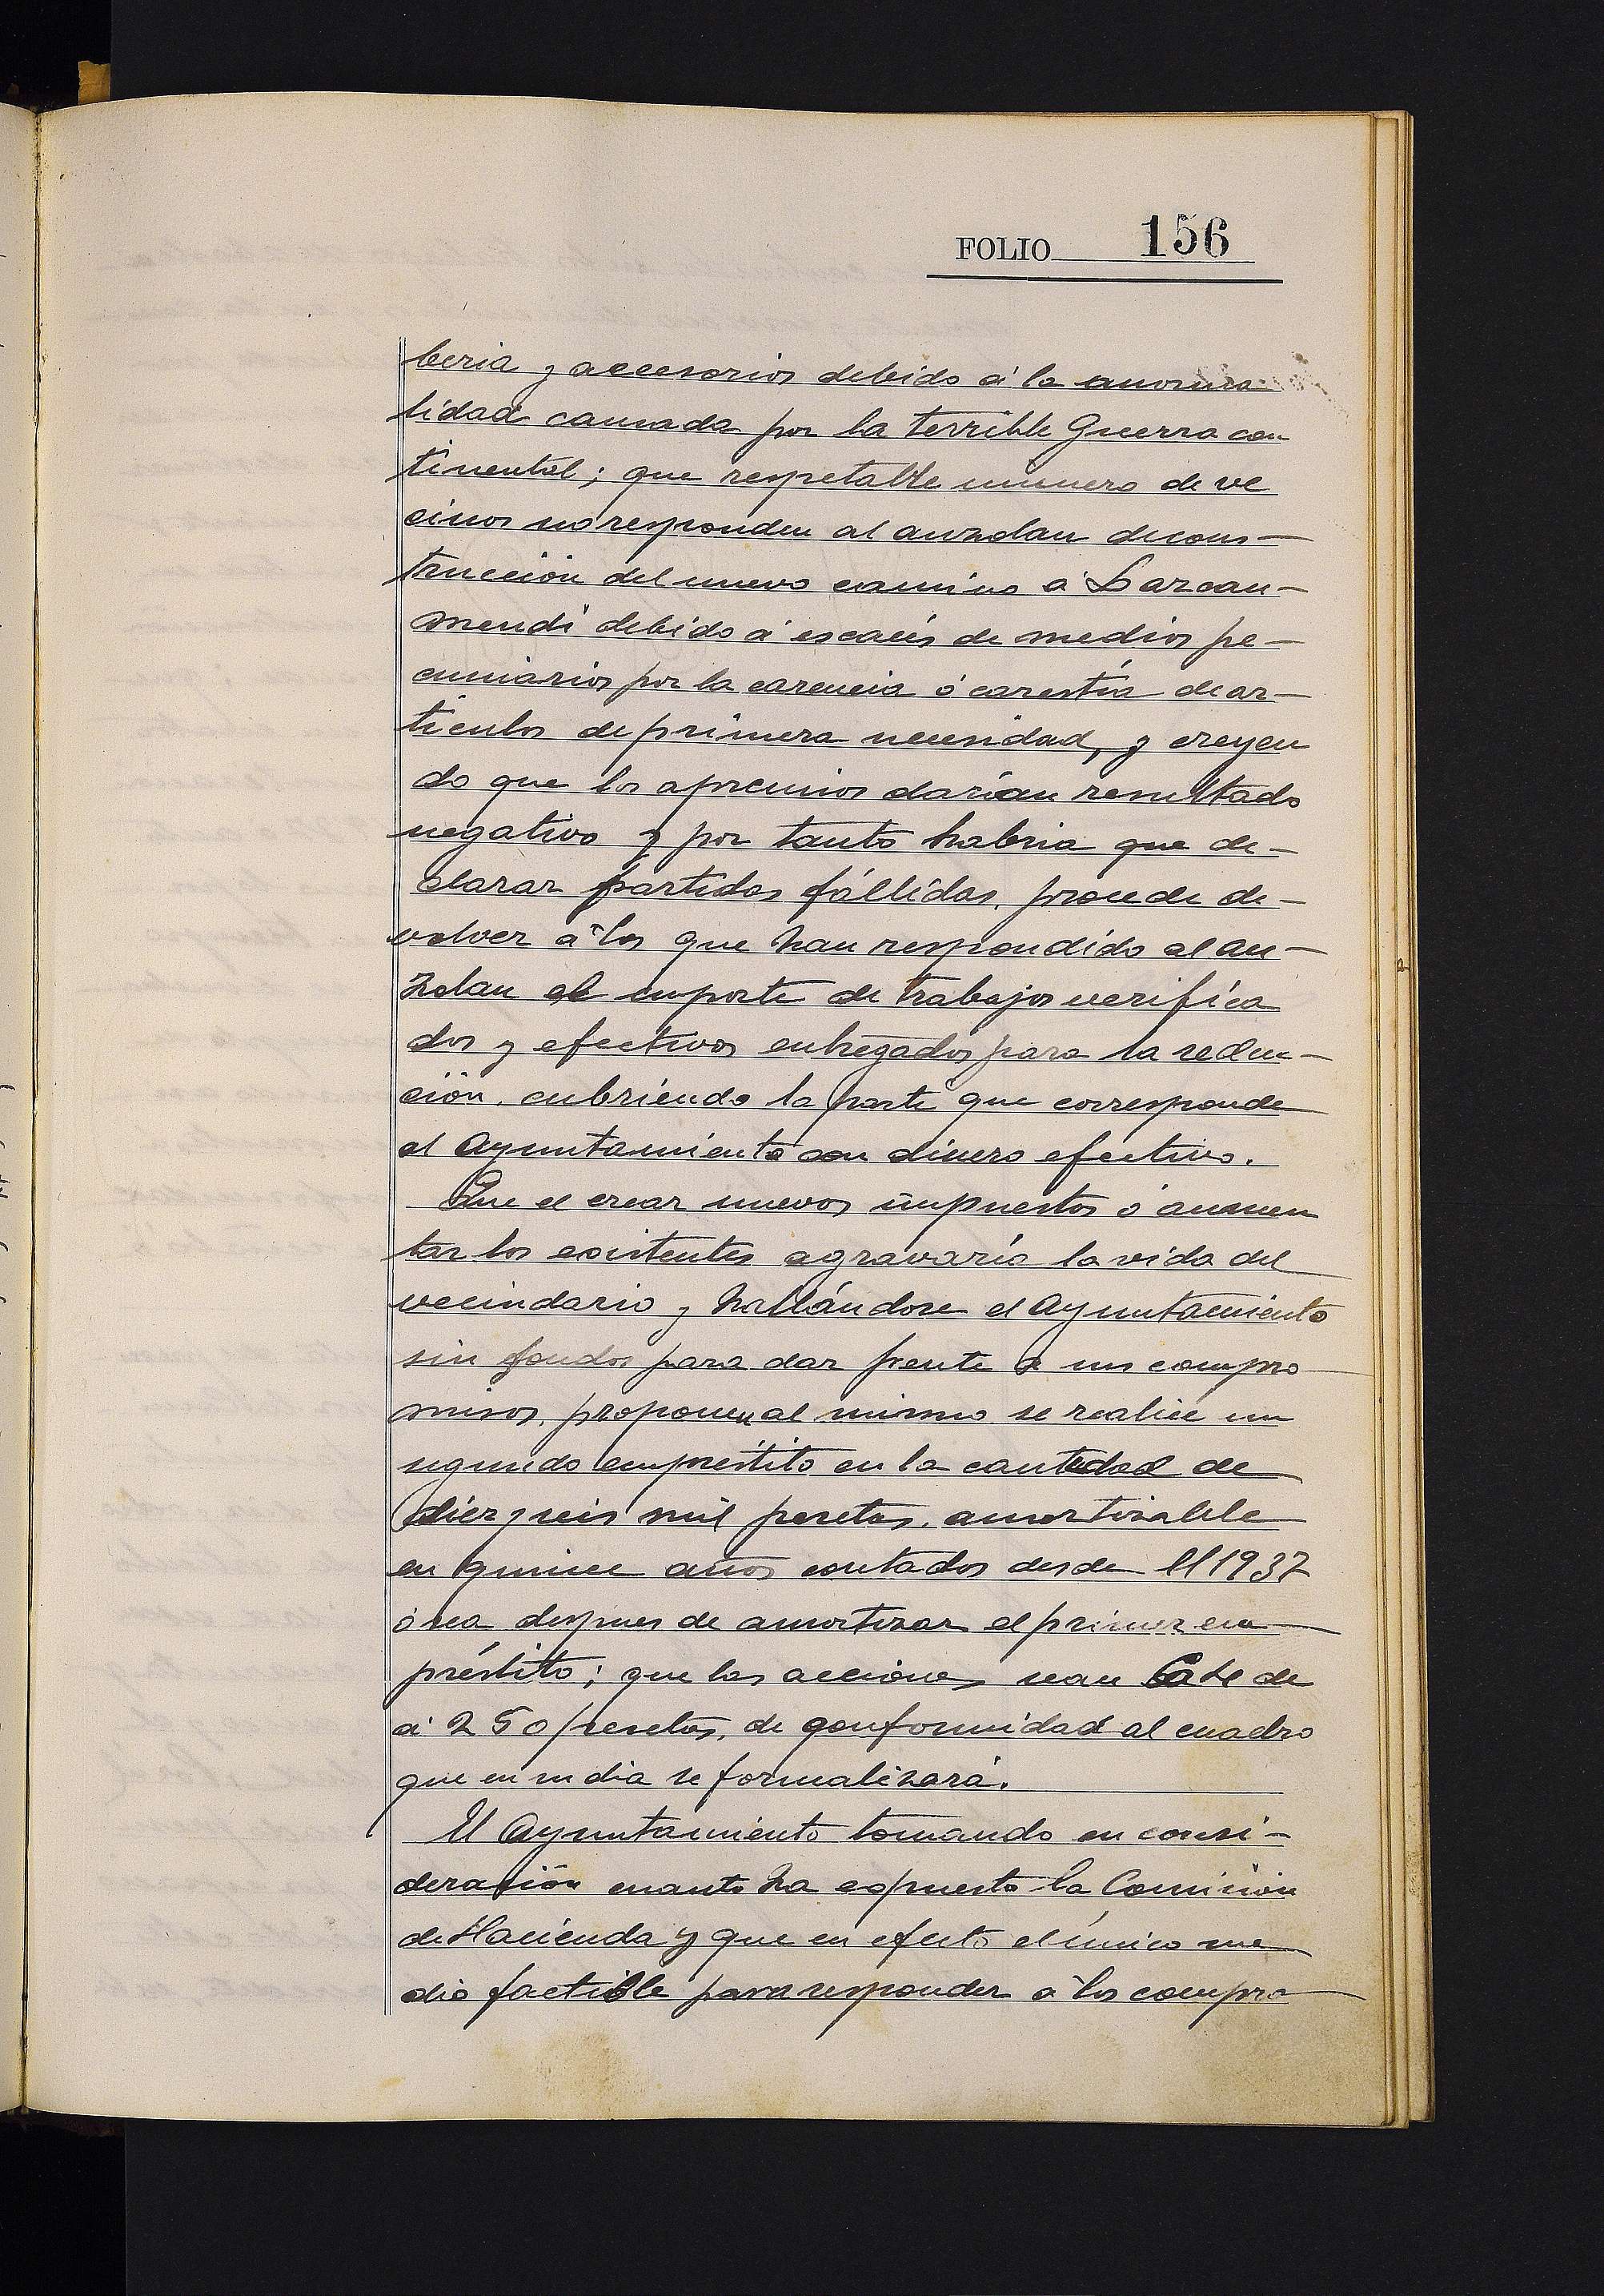 FOLIO 156
beria y accesorios debido á la anorma
lidad causada por la terrible Guerra con
tinental; que respetable numero de ve
cinos no responden al auzolan de cons-
trucción del nuevo camino á Larzan-
mendi debido á escaés de medios pe-
cuniarios por la carencia ó carestía de ar-
ticulos de primera necesidad, y creyen
do que los apremios darían resultado
negativo y por tanto habria que de-
clarar partidas fállidas, procede de-
volver á los que han respondido al au-
zolan el importe de trabajos verifica
dos y efectivos entregados para la reden-
ción, cubriendo la parte que corresponde
al Ayuntamiento con dinero efectivo.
Que el crear nuevos impuestos ó aumen
tar los existentes agravaría la vida del
vecindario y hallándose el Ayuntamiento
sin fondos para dar frente a sus compro
misos, proponen al mismo se realice un
segundo empréstito en la cantidad de
diez y seis mil pesetas, amortizable
en quince años contados desde el 1937
ó sea despues de amortizar el primer em
préstito; que las acciones sean de
á 250 pesetas, de conformidad al cuadro
que en su dia se formalizará.
El Ayuntamiento tomando en consi-
deración cuanto ha espuesto la Comisión
de Hacienda y que en efecto el único me
dio factible para responder á los compro